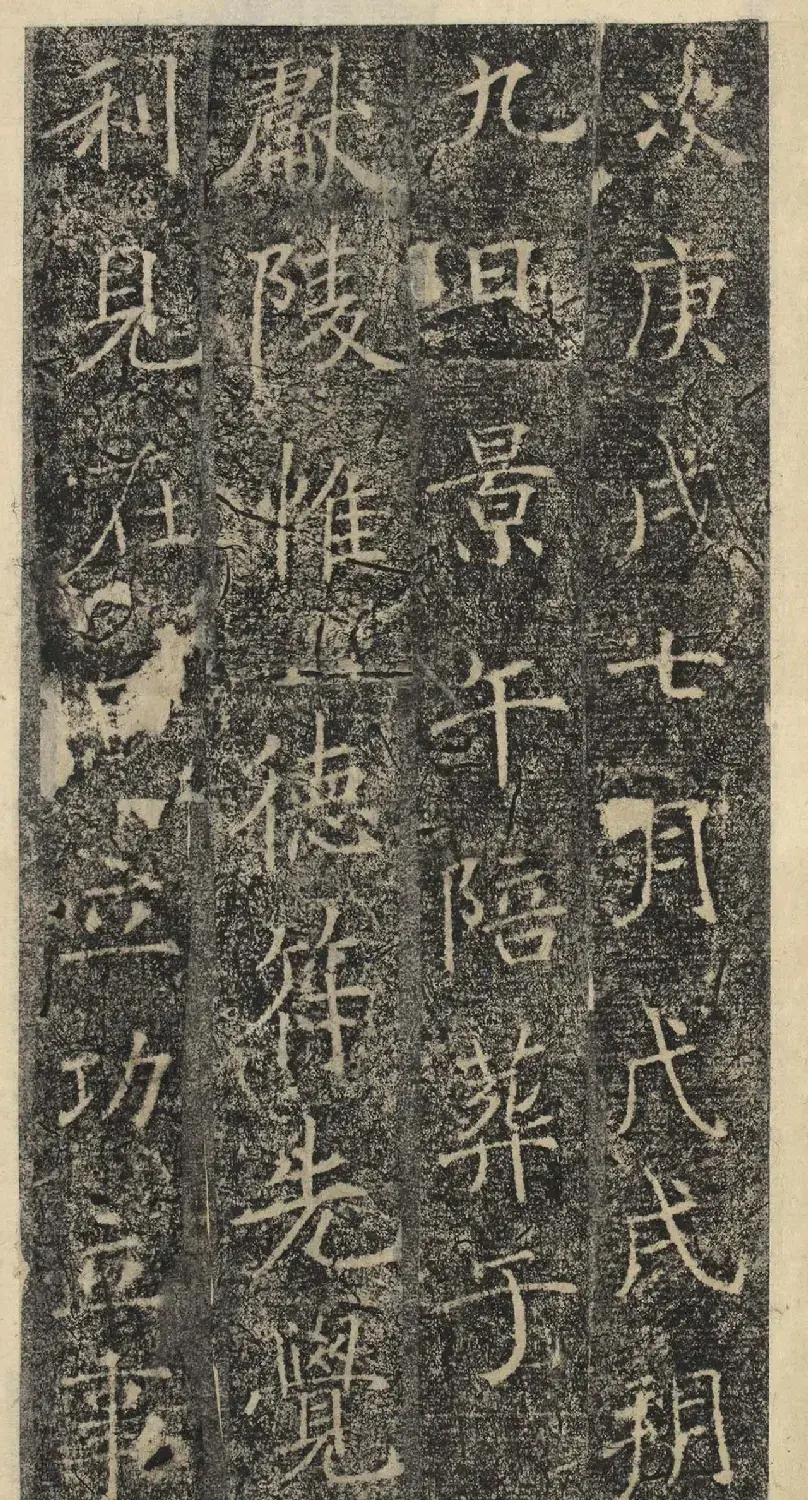 次庚戌七月戊戌朔
九日景午陪葬于
獻陵惟德符先覺
利見在田立功立事